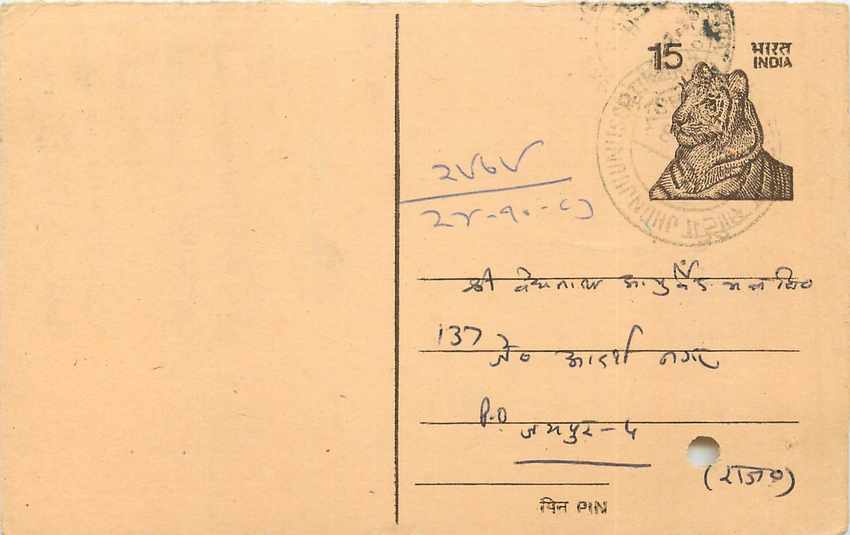 15 भारत
INDIA
JHUNJHUNU
२४७४
२४-१०-८१
श्री वैद्यनाथ आयुर्वेद भवन लि०
137 जे० आदर्श नगर
P.O. जयपुर-५
(राज०)
पिन PIN